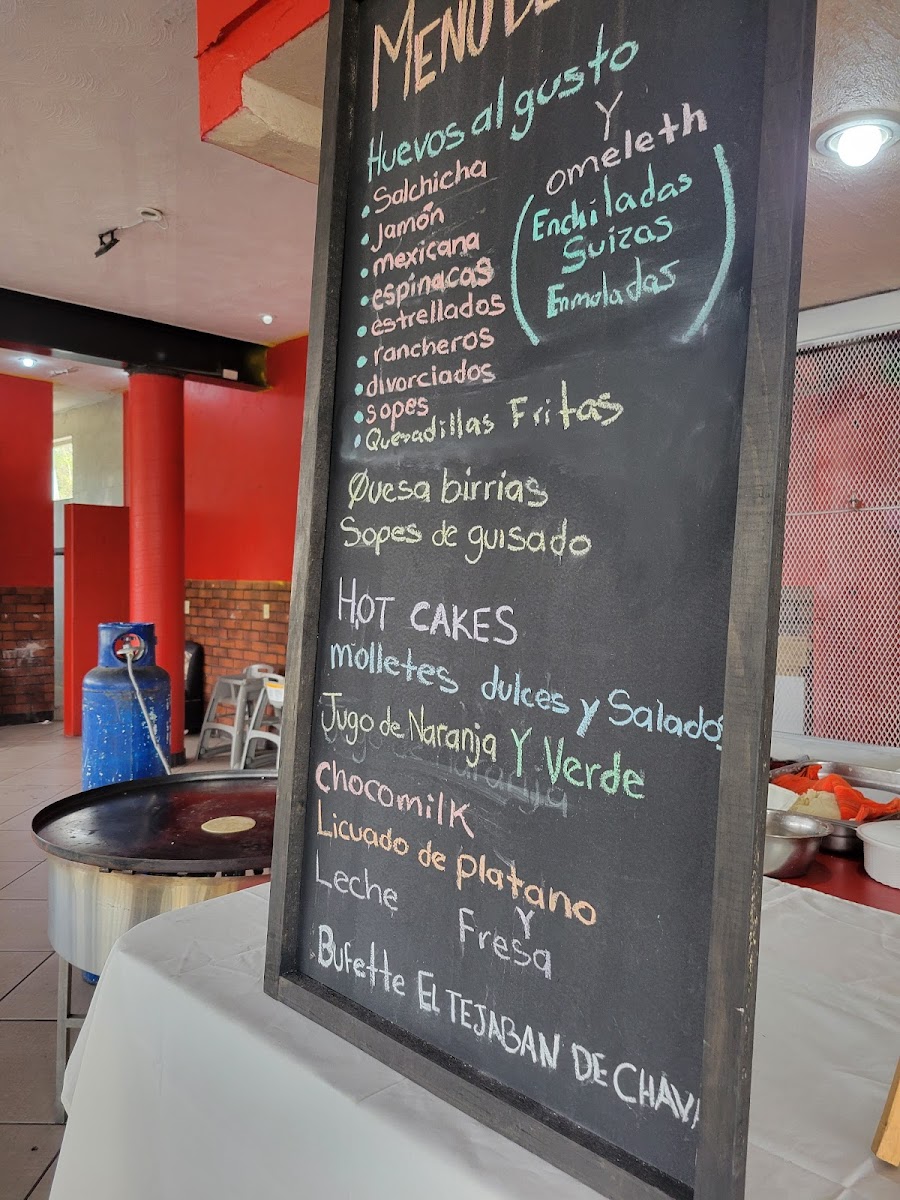 MENU DE
Huevos al gusto
Y
omeleth
• Salchicha
• Jamón
• mexicana
• espinacas
• estrellados
• rancheros
• divorciados
• sopes
• Quesadillas Fritas
(Enchiladas
Suizas
Enmoladas)
Quesa birrias
Sopes de guisado
HOT CAKES
molletes dulces y Salados
Jugo de Naranja Y Verde
Chocomilk
Licuado de platano
Y
Leche Fresa
Bufette EL TEJABAN DE CHAVA